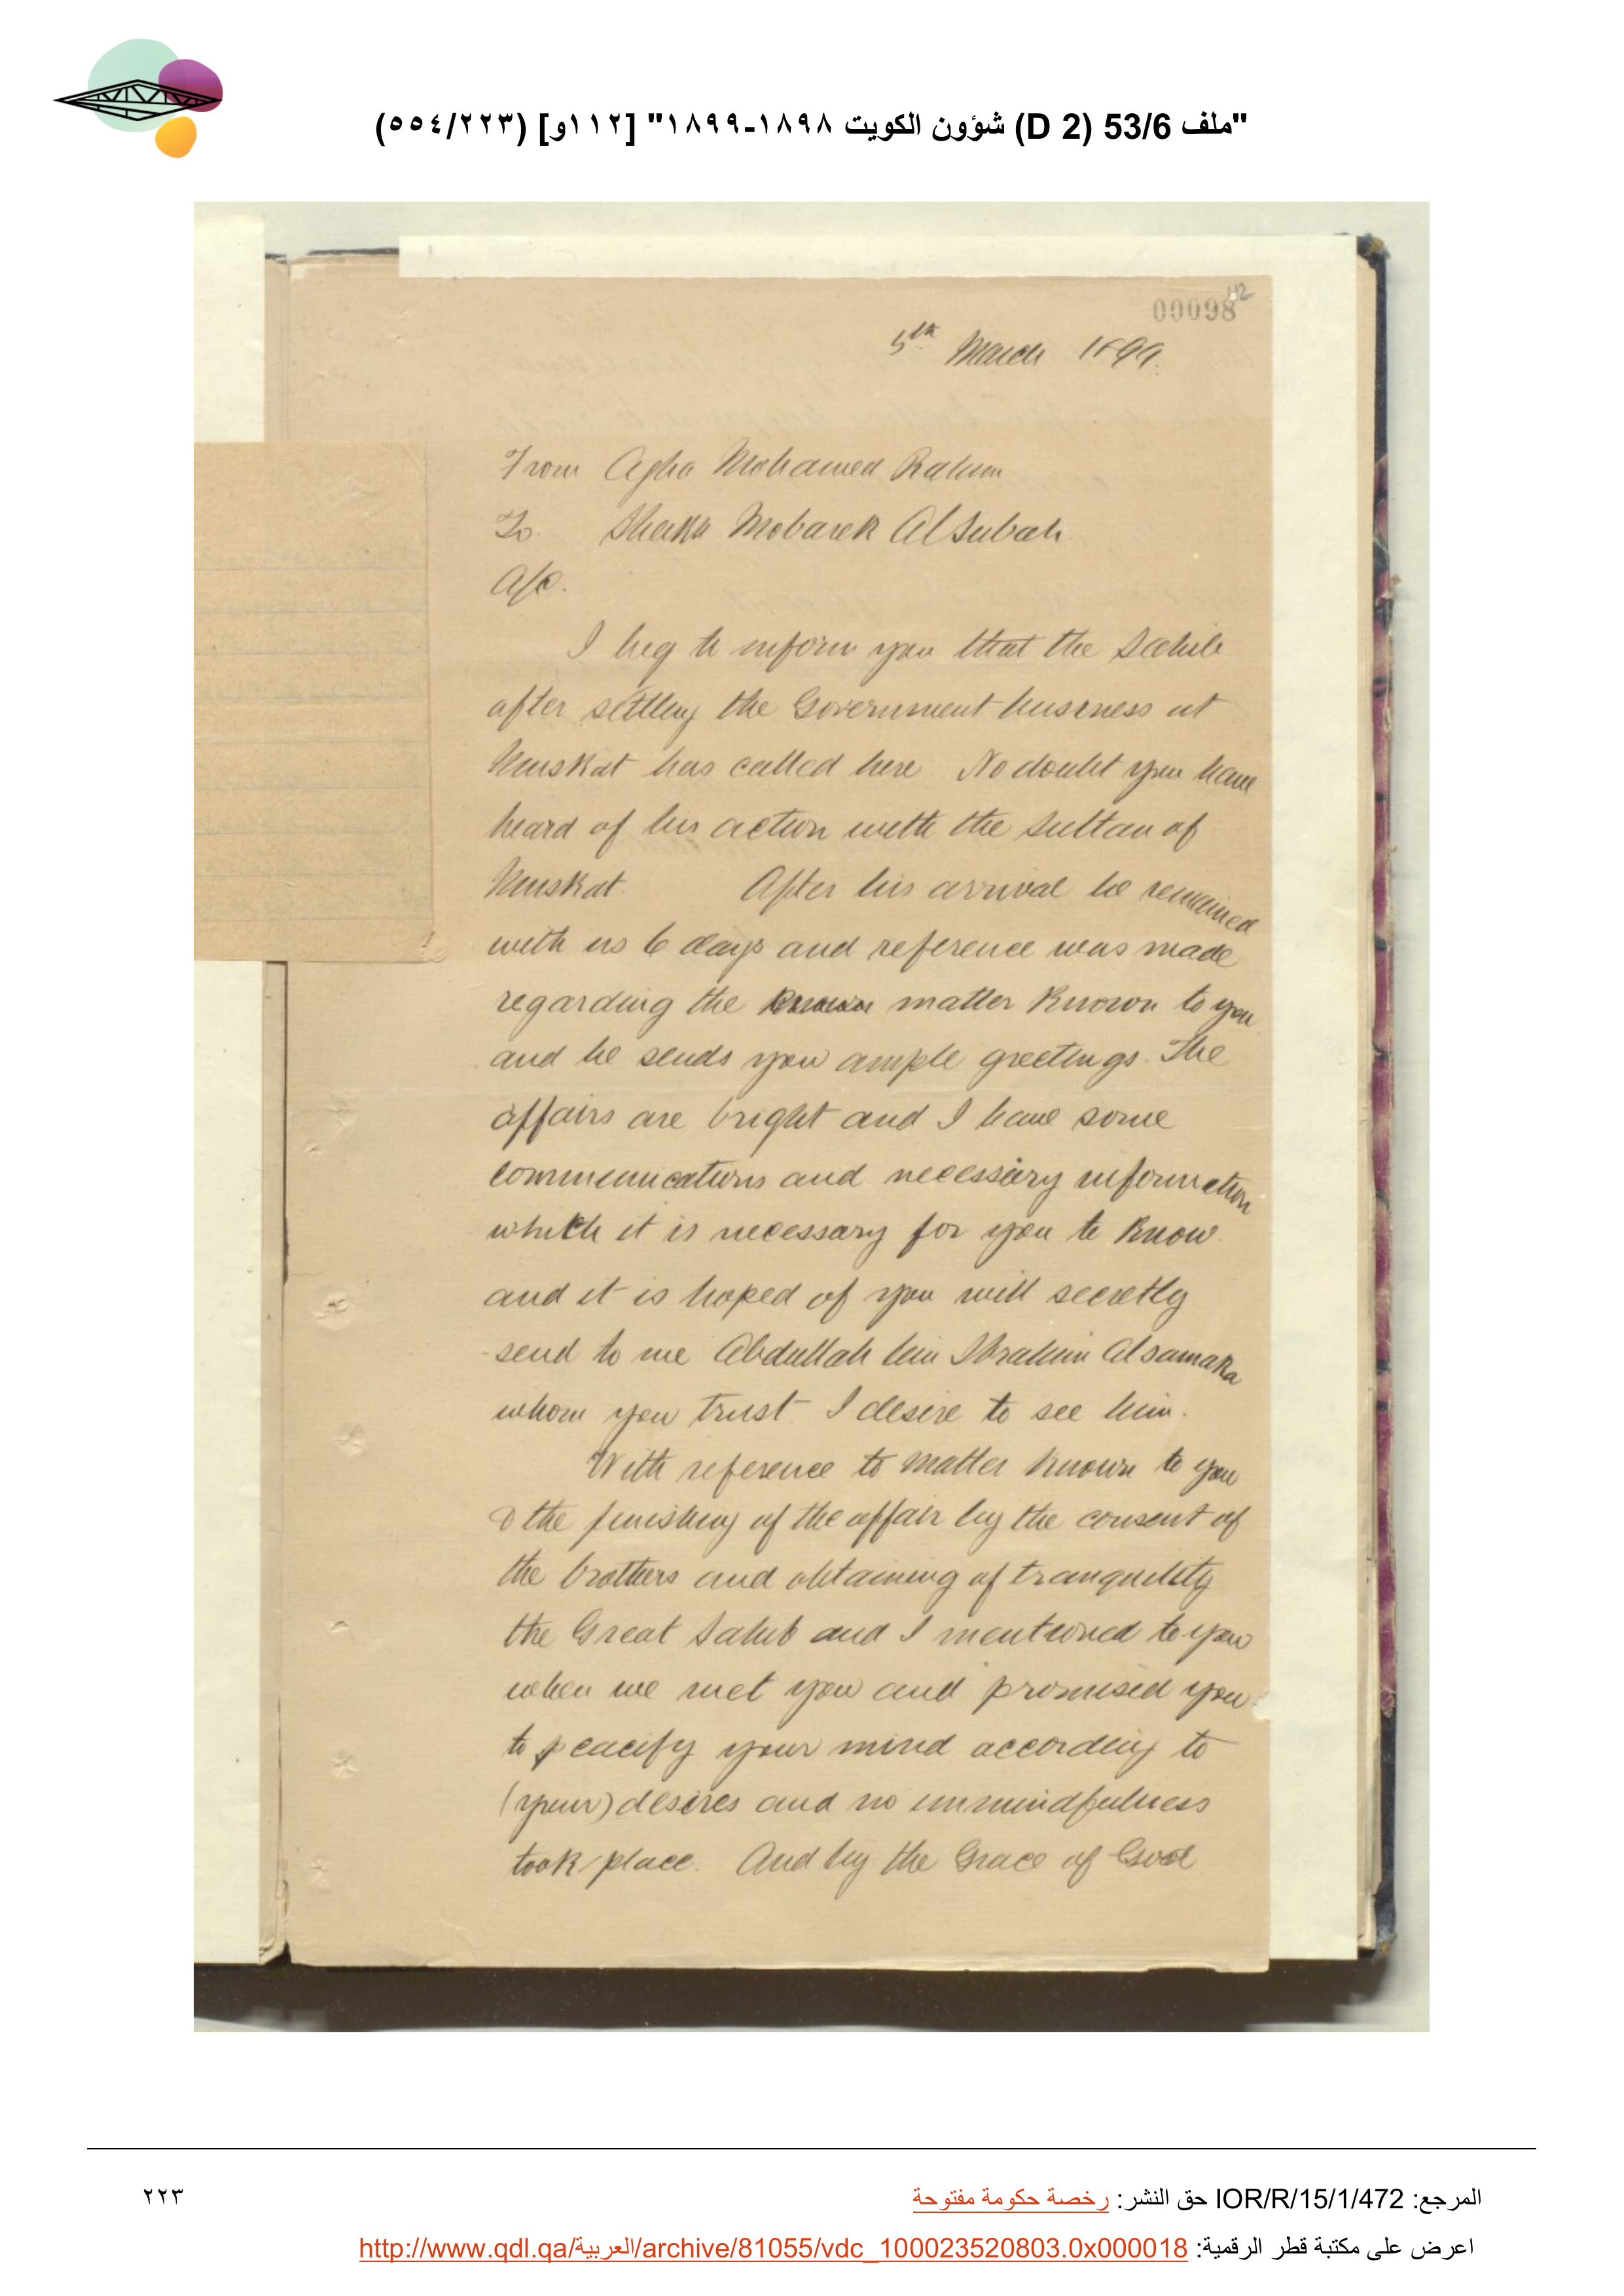 "ملف 53/6 (D 2) شؤون الكويت ١٨٩٨-١٨٩٩" [١١٢و] (٥٥٤/٢٢٣)
112
00098
5th March 1899.
From Agha Mohamed Rahim
To Sheikh Mobarek AlSubah
A/C.
I beg to inform you that the Sahib
after settling the Government business at
Muskat has called here No doubt you have
heard of his action with the Sultan of
Muskat. After his arrival he remained
with us 6 days and reference was made
regarding the known matter known to you
and he sends you ample greetings. The
affairs are bright and I have some
communications and necessary information
which it is necessary for you to know.
and it is hoped of you will secretly
send to me Abdullah bin Ibrahim Alsamaka
whom you trust I desire to see him.
With reference to matter known to you
& the finishing of the affair by the consent of
the brothers and obtaining of tranquility
the Great Sahib and I mentioned to you
when we met you and promised you
to pacify your mind according to
(your) desires and no unmindfulness
took place. And by the Grace of God
المرجع: IOR/R/15/1/472 حق النشر: رخصة حكومة مفتوحة
٢٢٣
اعرض على مكتبة قطر الرقمية: http://www.qdl.qa/العربية/archive/81055/vdc_100023520803.0x000018